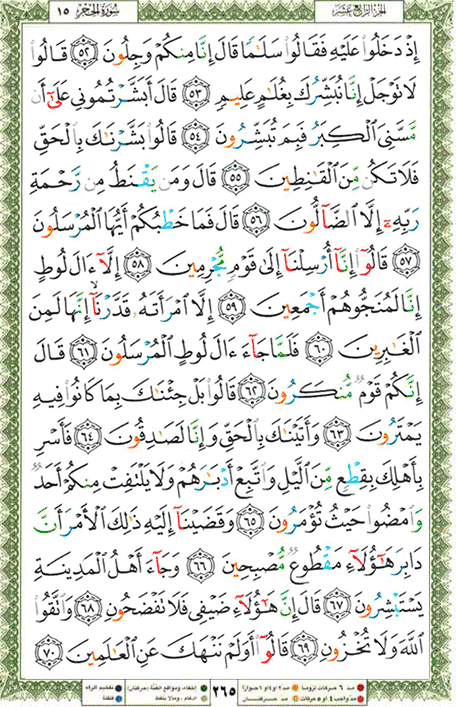 سُورَةُ الحِجْرِ ١٥ الجزء الرابع عشر
إِذْ دَخَلُوا۟ عَلَيْهِ فَقَالُوا۟ سَلَـٰمًا قَالَ إِنَّا مِنكُمْ وَجِلُونَ ٥٢ قَالُوا۟
لَا تَوْجَلْ إِنَّا نُبَشِّرُكَ بِغُلَـٰمٍ عَلِيمٍ ٥٣ قَالَ أَبَشَّرْتُمُونِى عَلَىٰٓ أَن
مَّسَّنِىَ ٱلْكِبَرُ فَبِمَ تُبَشِّرُونَ ٥٤ قَالُوا۟ بَشَّرْنَـٰكَ بِٱلْحَقِّ
فَلَا تَكُن مِّنَ ٱلْقَـٰنِطِينَ ٥٥ قَالَ وَمَن يَقْنَطُ مِن رَّحْمَةِ
رَبِّهِۦٓ إِلَّا ٱلضَّآلُّونَ ٥٦ قَالَ فَمَا خَطْبُكُمْ أَيُّهَا ٱلْمُرْسَلُونَ
٥٧ قَالُوٓا۟ إِنَّآ أُرْسِلْنَآ إِلَىٰ قَوْمٍ مُّجْرِمِينَ ٥٨ إِلَّآ ءَالَ لُوطٍ
إِنَّا لَمُنَجُّوهُمْ أَجْمَعِينَ ٥٩ إِلَّا ٱمْرَأَتَهُۥ قَدَّرْنَآ ۙ إِنَّهَا لَمِنَ
ٱلْغَـٰبِرِينَ ٦٠ فَلَمَّا جَآءَ ءَالَ لُوطٍ ٱلْمُرْسَلُونَ ٦١ قَالَ
إِنَّكُمْ قَوْمٌ مُّنكَرُونَ ٦٢ قَالُوا۟ بَلْ جِئْنَـٰكَ بِمَا كَانُوا۟ فِيهِ
يَمْتَرُونَ ٦٣ وَأَتَيْنَـٰكَ بِٱلْحَقِّ وَإِنَّا لَصَـٰدِقُونَ ٦٤ فَأَسْرِ
بِأَهْلِكَ بِقِطْعٍ مِّنَ ٱلَّيْلِ وَٱتَّبِعْ أَدْبَـٰرَهُمْ وَلَا يَلْتَفِتْ مِنكُمْ أَحَدٌ
وَٱمْضُوا۟ حَيْثُ تُؤْمَرُونَ ٦٥ وَقَضَيْنَآ إِلَيْهِ ذَٰلِكَ ٱلْأَمْرَ أَنَّ
دَابِرَ هَـٰٓؤُلَآءِ مَقْطُوعٌ مُّصْبِحِينَ ٦٦ وَجَآءَ أَهْلُ ٱلْمَدِينَةِ
يَسْتَبْشِرُونَ ٦٧ قَالَ إِنَّ هَـٰٓؤُلَآءِ ضَيْفِى فَلَا تَفْضَحُونِ ٦٨ وَٱتَّقُوا۟
ٱللَّهَ وَلَا تُخْزُونِ ٦٩ قَالُوٓا۟ أَوَلَمْ نَنْهَكَ عَنِ ٱلْعَـٰلَمِينَ ٧٠
مد ٦ حركات لزوماً مد ٢ او ٤ او ٦ جوازاً إخفاء، ومواقع الغُنَّة (حركتان) تفخيم الراء
مد واجب ٤ او ٥ حركات مد حركتان إدغام، وما لا يلفظ قلقلة
٢٦٥